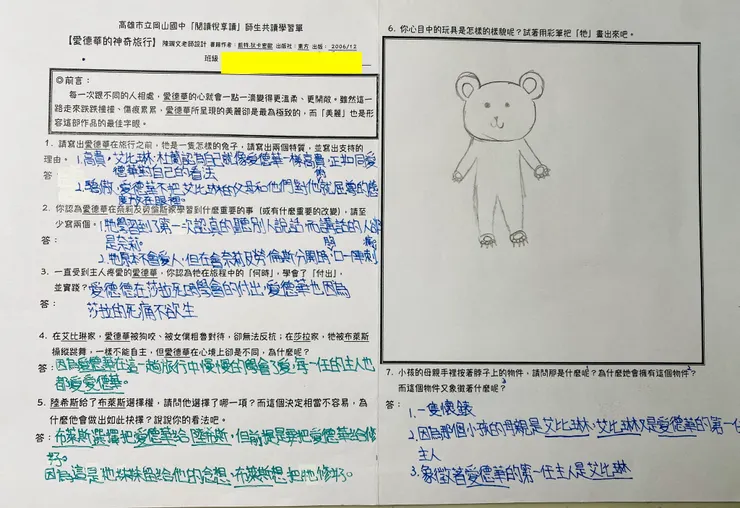 高雄市立岡山國中「閱讀悅享讀」師生共讀學習單
【愛德華的神奇旅行】 陳瀾文老師設計 書籍作者：凱特.狄卡密歐 出版社：東方 出版：2006/12
班級
◎前言：
每一次跟不同的人相處，愛德華的心就會一點一滴變得更溫柔、更開敞。雖然這一
路走來跌跌撞撞、傷痕累累，愛德華所呈現的美麗卻是最為極致的，而「美麗」也是形
容這部作品的最佳字眼。
1. 請寫出愛德華在旅行之前，牠是一隻怎樣的兔子，請寫出兩個特質，並寫出支持的
理由。1.高貴，艾比琳.杜蘭認為自己就像愛德華一樣高貴，正如同愛
答： 德華對自己的看法
2.驕傲，愛德華不把艾比琳的父母和他們對他就屈尊的態
度放在眼裡。
2. 你認為愛德華在奈莉及勞倫斯家學習到什麼重要的事（或有什麼重要的改變），請至
少寫兩個。1.牠學習到了第一次認真的聽別人說話，而講話的人卻
答： 是奈莉。
2.牠原本不會愛人，但在會奈莉及勞倫斯分開時，口一陣刺
3. 一直受到主人疼愛的愛德華，你認為牠在旅程中的「何時」，學會了「付出」，
並實踐？愛德德在莎拉死時學會的付出，愛德華也因為
答： 莎拉的死痛不欲生
4. 在艾比琳家，愛德華被狗咬、被女僕粗魯對待，卻無法反抗；在莎拉家，牠被布萊斯
操縱跳舞，一樣不能自主，但愛德華在心境上卻是不同，為什麼呢？
答：因為愛德華在這一趟旅行中慢慢的學會了愛，每一任的主人也
都愛愛德華。
5. 陸希斯給了布萊斯選擇權，請問他選擇了哪一項？而這個決定相當不容易，為
什麼他會做出如此抉擇？說說你的看法吧。
答：布萊斯選擇把愛德華給陸希斯，但前提是要把愛德華給修
好。
因為這是他妹妹留給他的念想，布萊斯想把牠修好。
6. 你心目中的玩具是怎樣的樣貌呢？試著用彩筆把「牠」畫出來吧。
7. 小孩的母親手裡按著脖子上的物件，請問那是什麼呢？為什麼她會擁有這個物件？
而這個物件又象徵著什麼呢？
答：1.一隻懷錶
2.因為那個小孩的母親是艾比琳，艾比琳又是愛德華的第一任
主人
3.象徵著愛德華的第一任主人是艾比琳